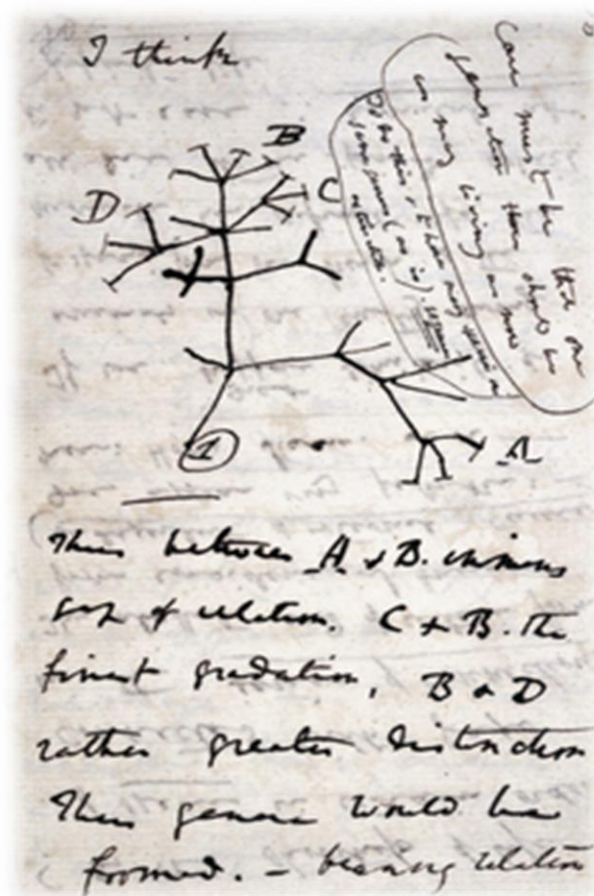 I think
Case must be that one
generation then should be
as many living as now
To do this & to have many species in
same genus (as is). requires
extinction.
B
D
C
1
A
Thus between A & B. immens
gap of relation. C & B. The
finest gradation, B & D
rather greater distinction
Thus genera would be
formed. — bearing relation